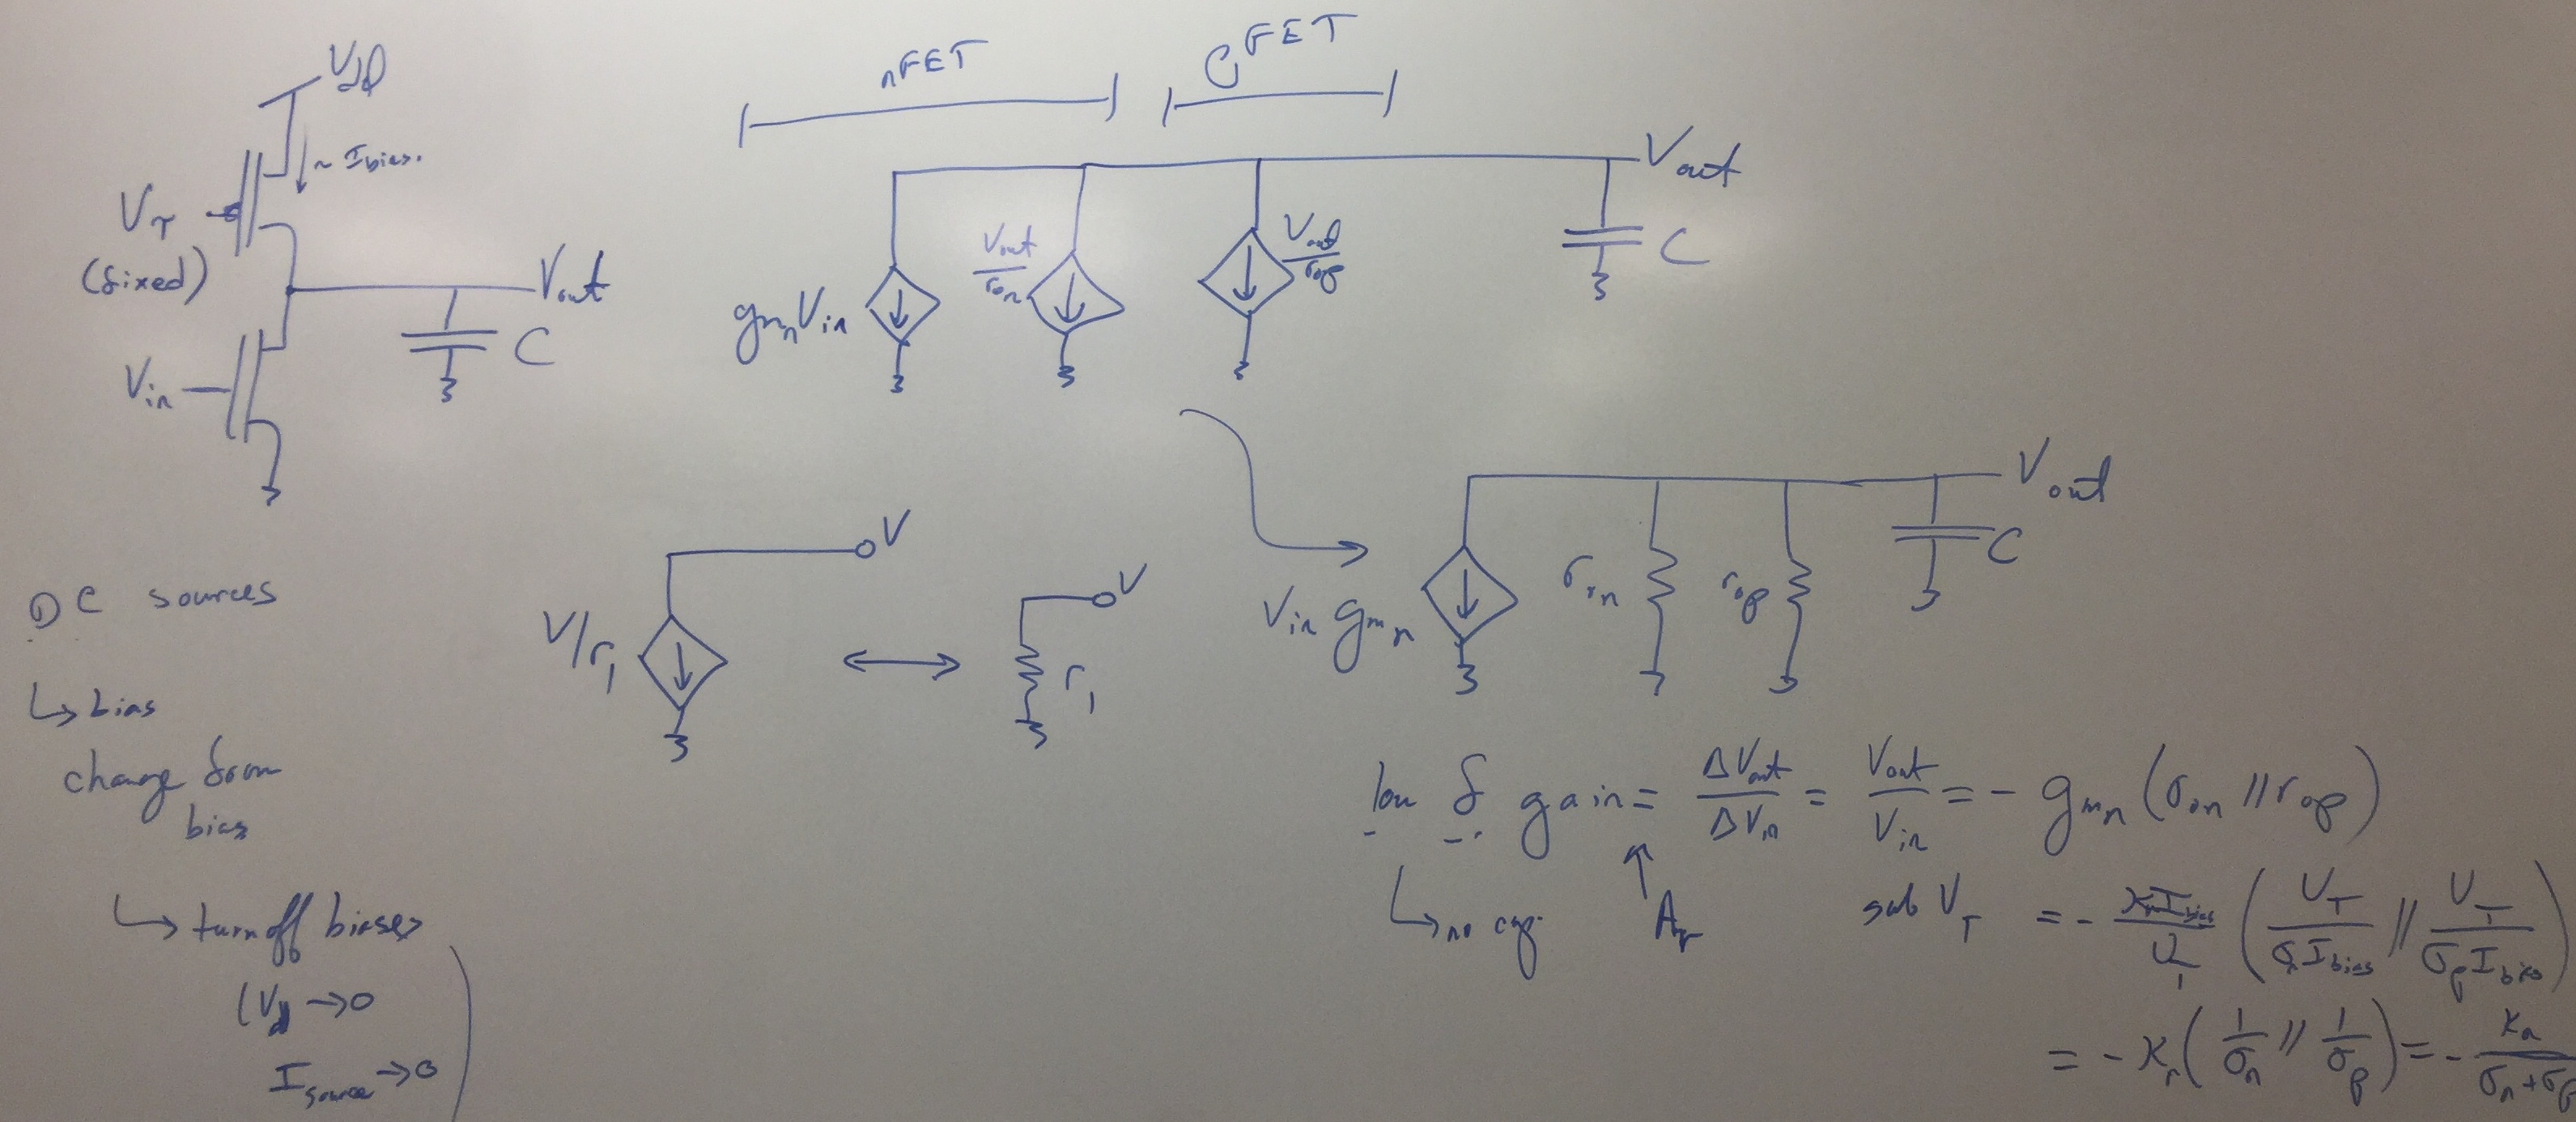 Vdd
~ Ibias.
Vτ
(fixed)
Vout
C
Vin
nFET
pFET
gmn Vin
Vout/ron
Vout/rop
Vout
C
DC sources
↳ bias
change from
bias
↳ turn off biases
(Vdd → 0
Isource → 0
V/r1
V
↔
V
r1
Vin gmn
ron
rop
Vout
C
low f gain = ΔVout/ΔVin = Vout/Vin = - gmn (ron // rop)
↳ no cap.
↑
Av
sub VT = - κn Ibias/UT (UT/σn Ibias // UT/σp Ibias)
= - κn (1/σn // 1/σp) = - κn/σn + σp